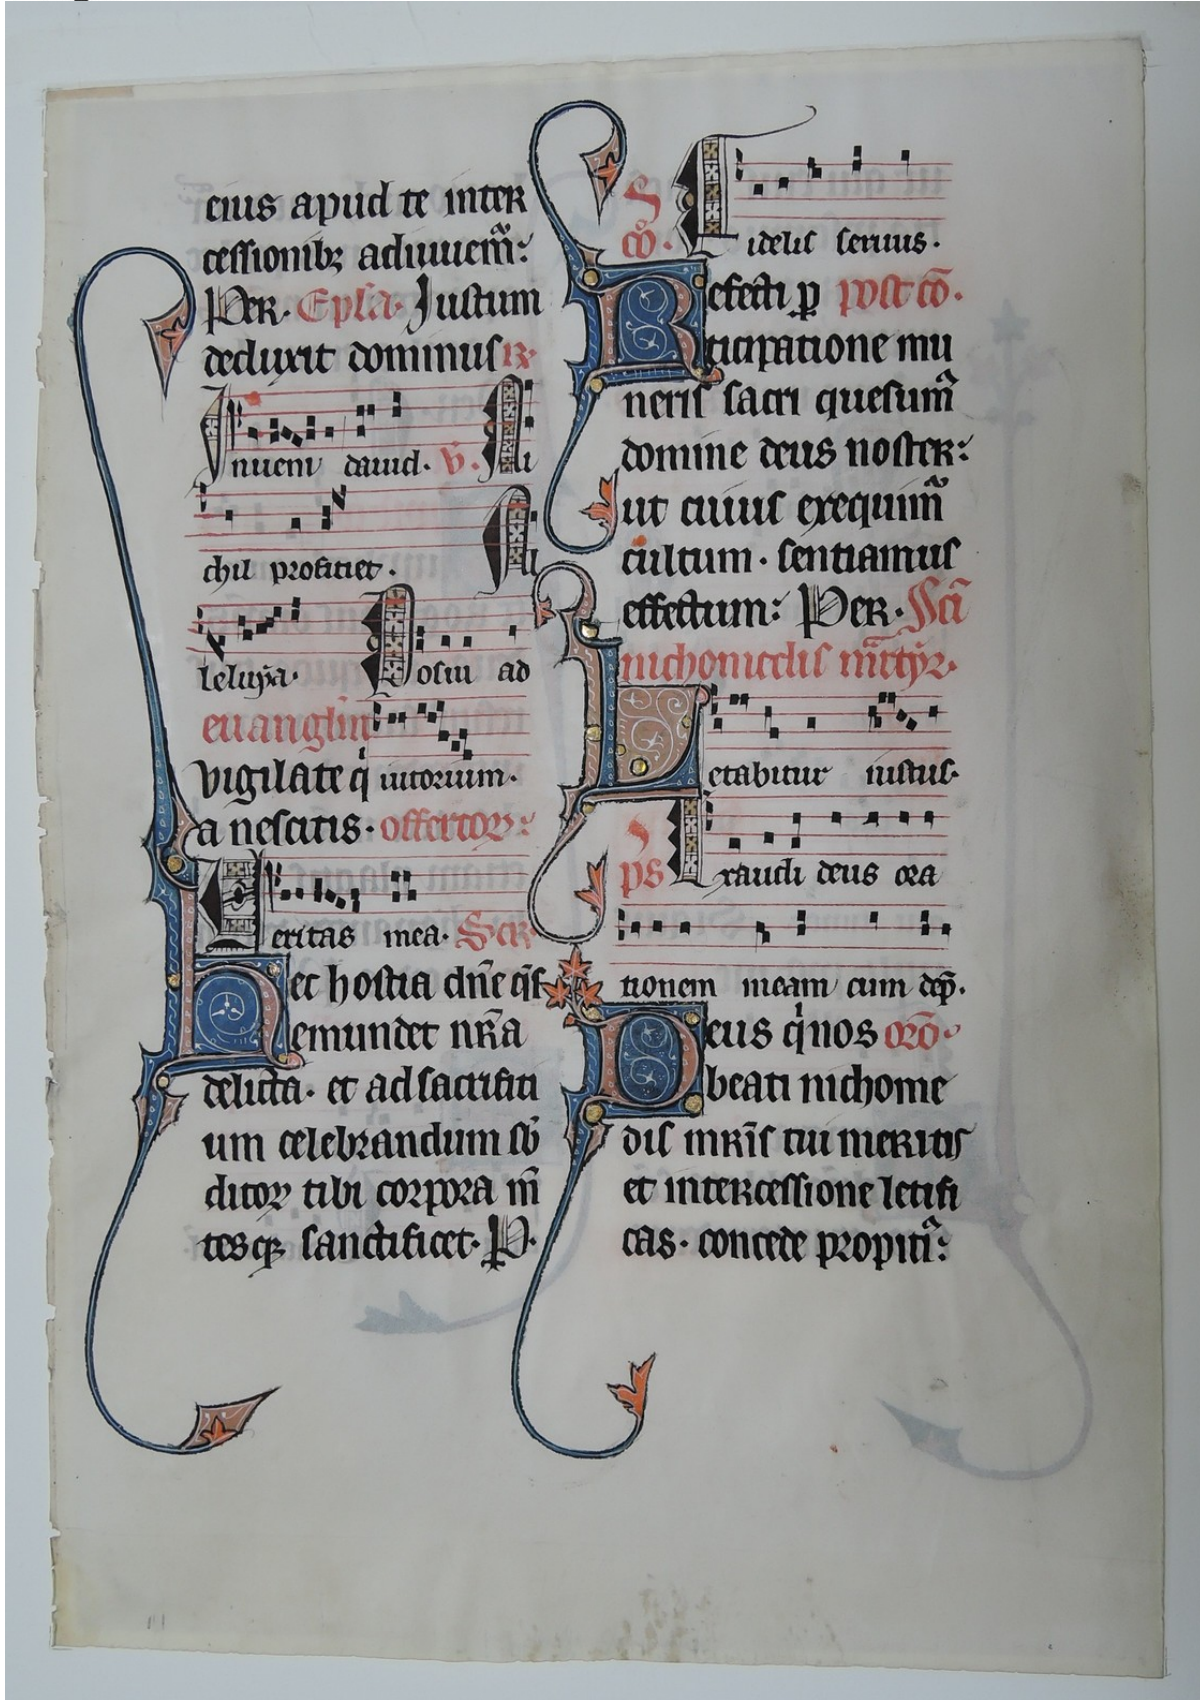 eius apud te inter
cessionibz adiuuem̃:
Per. Epl̃a. Iustum
deduxit dominus R̃.
Inueni dauid. v̄. Ni
chil proficiet. Al
leluya. Posui ad
euangliũ
vigilate q̄ iutorium.
a nescitis. offertoꝝ:
Ueritas mea. Secr̃
Hec hostia dñe qs̃
emundet nr̃a
delicta. et ad sacrifiti
um celebrandum sb̃
ditoꝝ tibi corpora m̃
tesqꝫ sanctificet. P.
cō. Fidelis seruus.
Refecti ꝑ post cō.
ticipatione mu
neris sacri quesum̃
domine deus noster:
ut cuius exequim̃
cultum. sentiamus
effectum: Per. Sc̃i
nichomedis mr̃tyr̃.
Letabitur iustus.
ps Exaudi deus ora
tionem meam cum dep̃.
Deus q̇ nos orõ.
beati nichome
dis mr̃is tui meritis
et intercessione letifi
cas. concede propiti9: